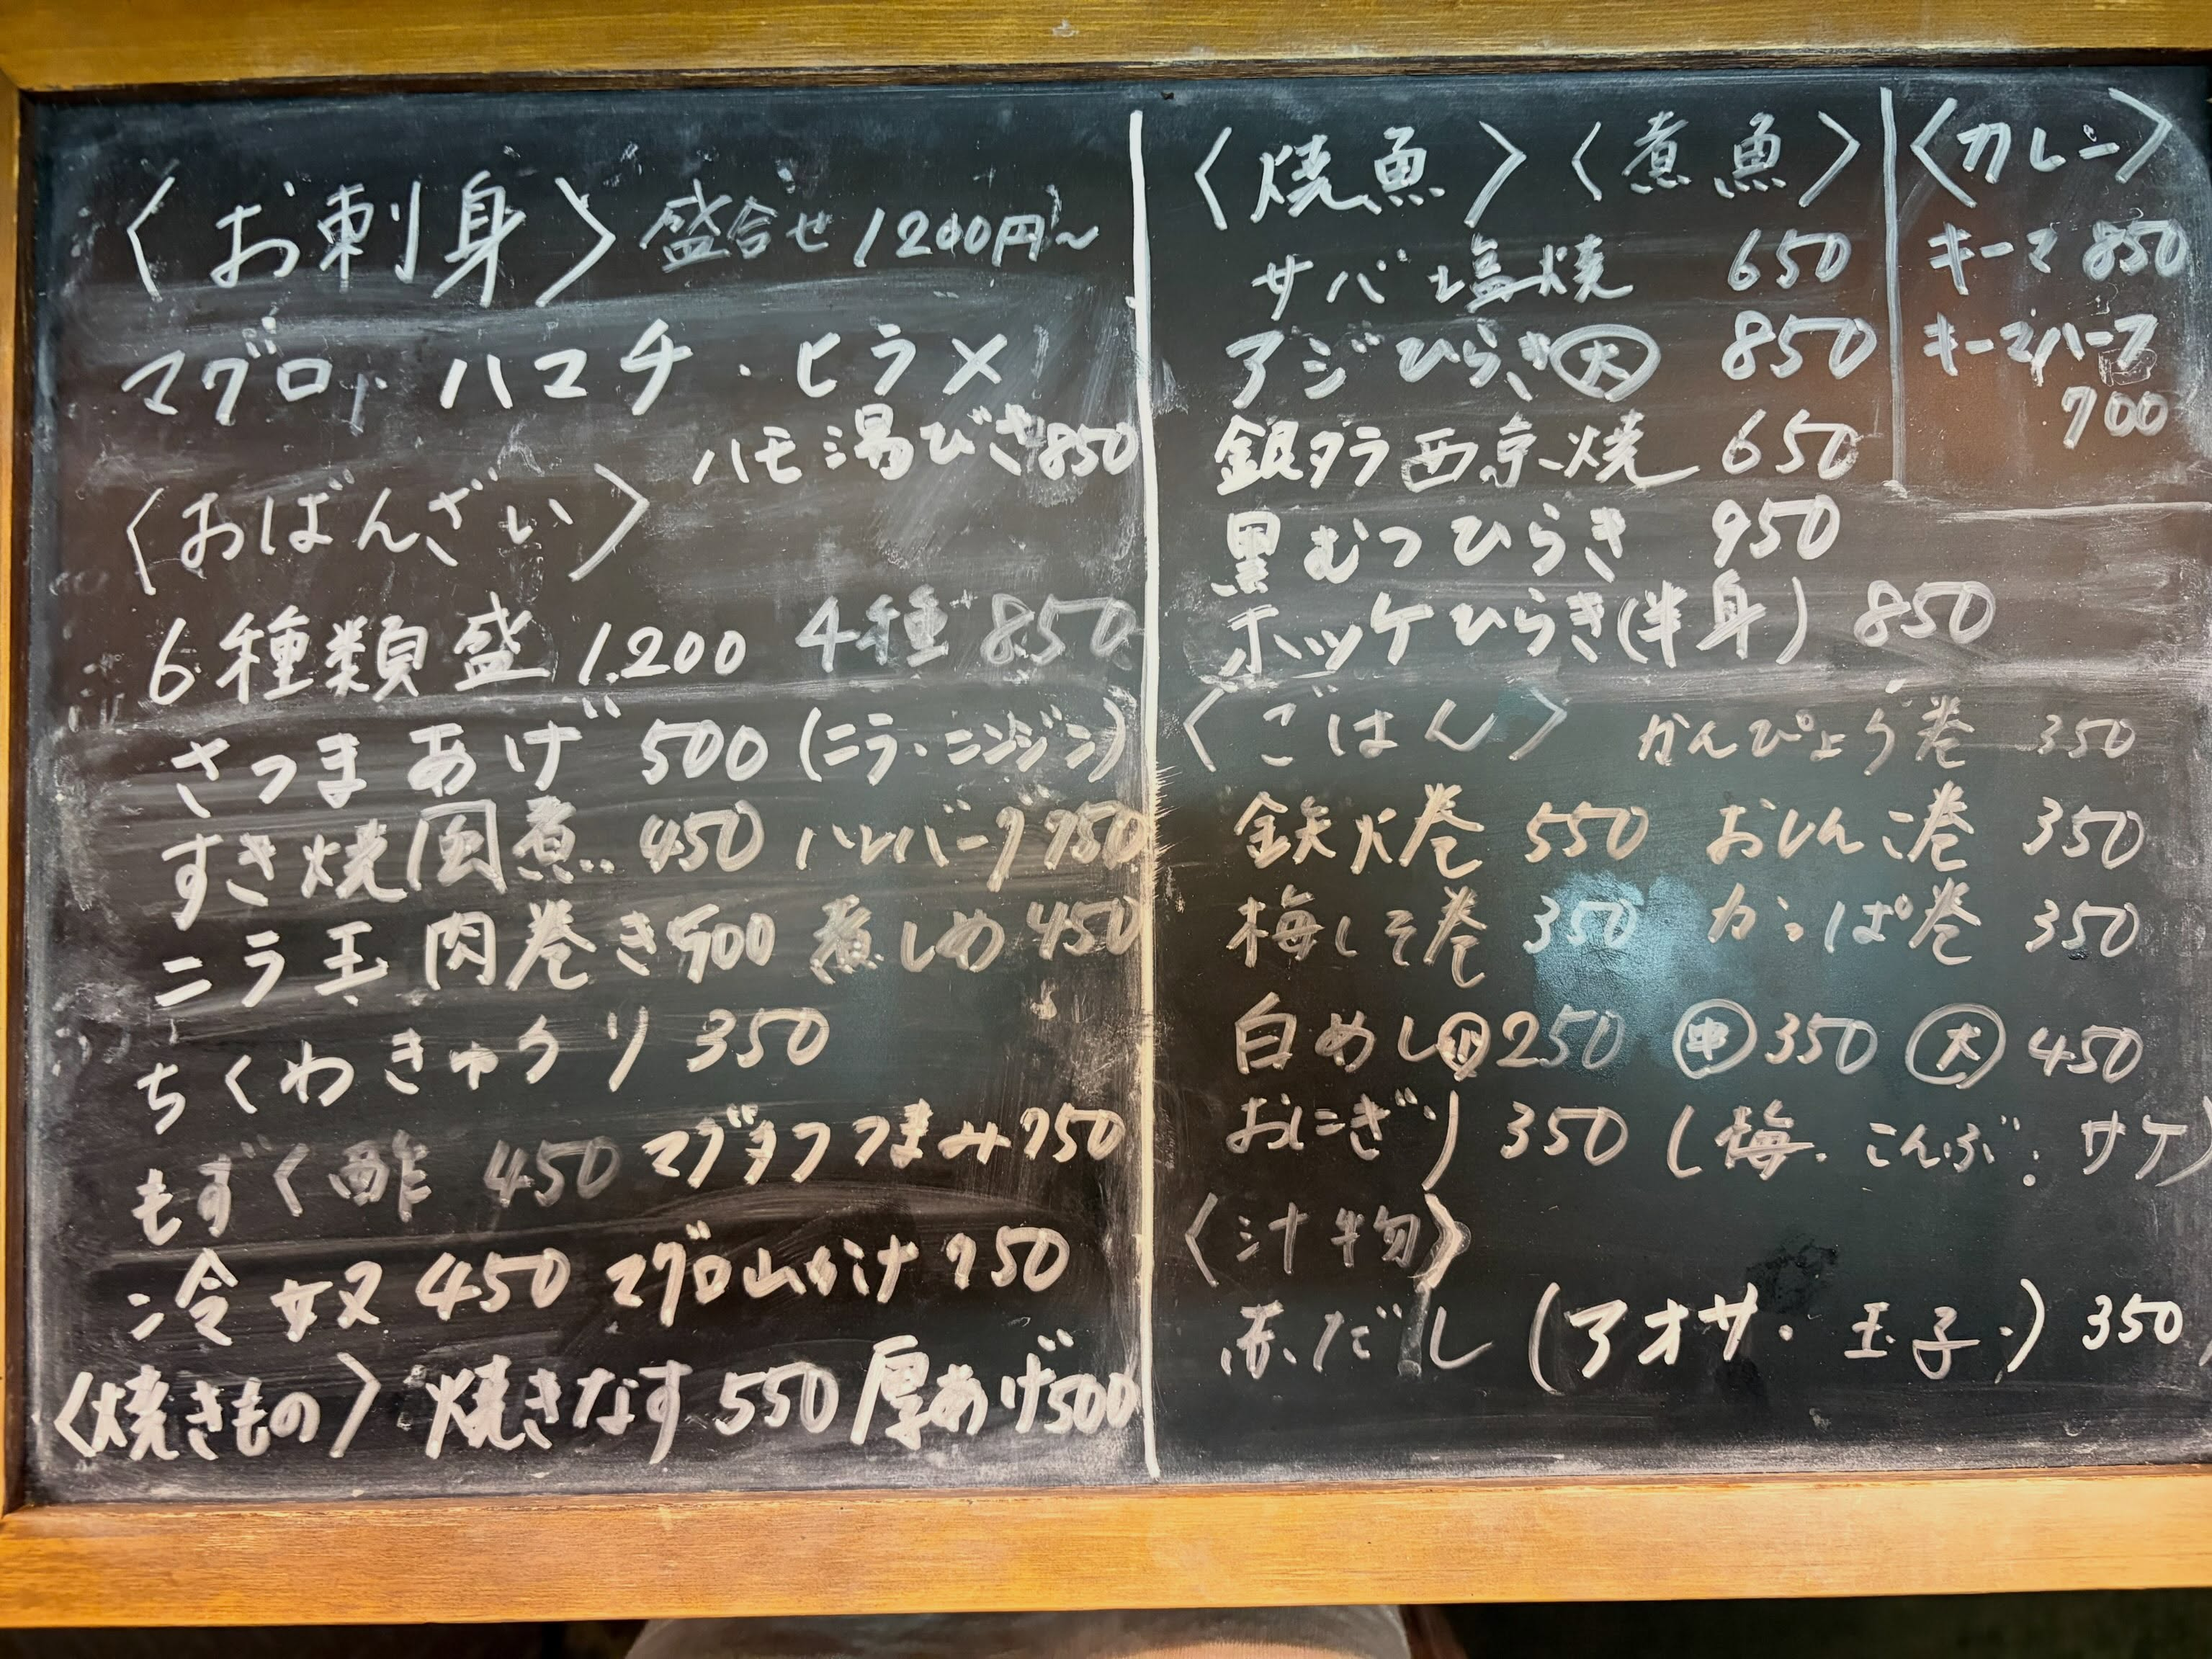 〈お刺身〉盛合せ 1200円〜
マグロ・ハマチ・ヒラメ
ハモ湯びき850
〈おばんざい〉
6種類盛 1.200 4種 850
さつまあげ 500 (ニラ・ニンジン)
すき焼風煮 450 ハンバーグ 750
ニラ玉肉巻き 500 煮しめ 450
ちくわきゅうり 350
もずく酢 450 マグタクつまみ 750
冷奴 450 マグロ山かけ 750
〈焼きもの〉焼きなす 550 厚あげ500
〈焼魚〉〈煮魚〉
サバ塩焼 650
アジひらき 大 850
銀ダラ西京焼 650
黒むつひらき 950
ホッケひらき(半身) 850
〈カレー〉
キーマ 850
キーマハーフ
700
〈ごはん〉 かんぴょう巻 350
鉄火巻 550 おしんこ巻 350
梅しそ巻 350 かっぱ巻 350
白めし 小 250 中 350 大 450
おにぎり 350 (梅・こんぶ・サケ)
〈汁物〉
赤だし (アオサ・玉子・) 350